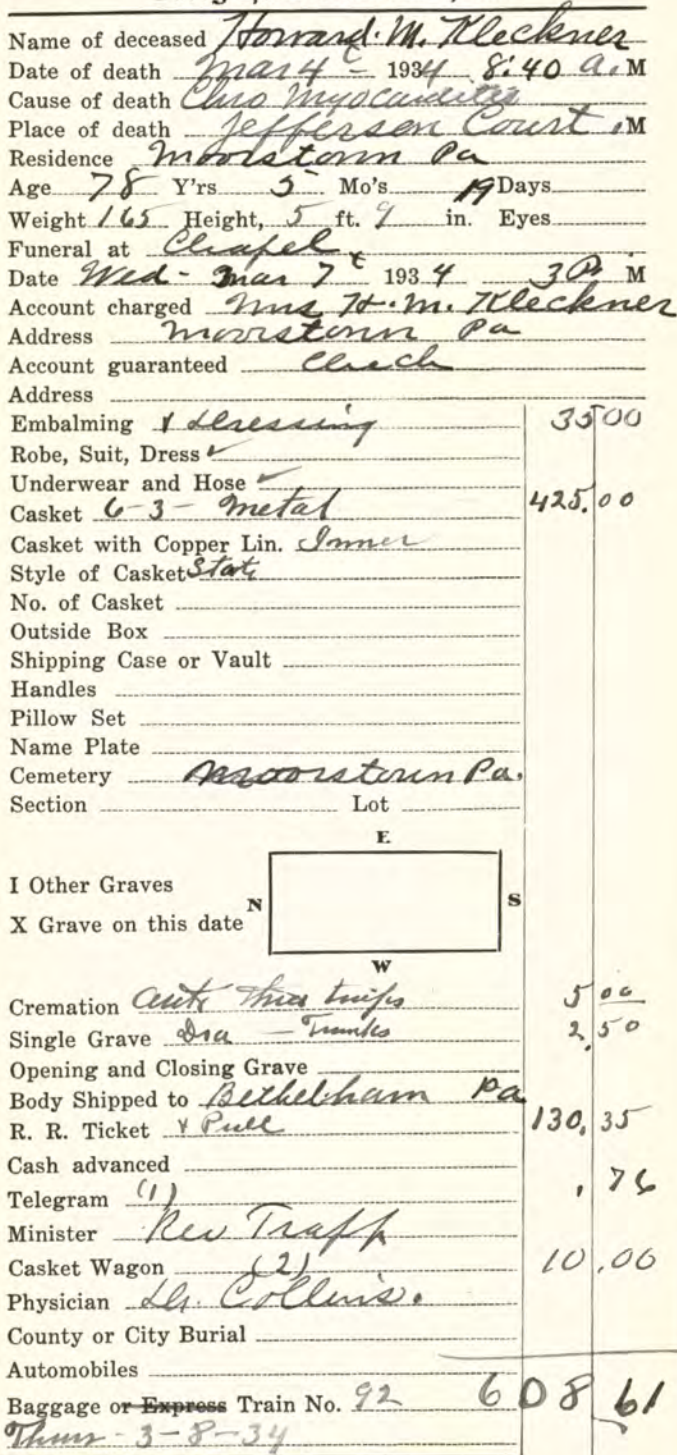 Name of deceased Howard. M. Kleckner
Date of death Mar 4 1934 8:40 a. M
Cause of death Chro Myocarditis
Place of death Jefferson Court. M
Residence Moorstown Pa
Age 78 Y'rs 5 Mo's 19 Days
Weight 165 Height, 5 ft. 9 in. Eyes
Funeral at Chapel
Date Wed - Mar 7 1934 3 P. M
Account charged Mrs H. M. Kleckner
Address Moorstown Pa
Account guaranteed
Address
Embalming & Dressing 35 00
Robe, Suit, Dress ✓
Underwear and Hose ✓
Casket 6-3- Metal 425.00
Casket with Copper Lin. Inner
Style of Casket State
No. of Casket
Outside Box
Shipping Case or Vault
Handles
Pillow Set
Name Plate
Cemetery Moorstown Pa.
Section Lot
E
I Other Graves
N S
X Grave on this date
W
Cremation trips 5 00
Single Grave Dra - Trunks 2.50
Opening and Closing Grave
Body Shipped to Bethelham Pa
R. R. Ticket & Pull 130.35
Cash advanced
Telegram (1) .76
Minister Rev Trapp
Casket Wagon (2) 10.00
Physician Dr. Collins.
County or City Burial
Automobiles
Baggage or Express Train No. 92 608 61
Thurs - 3-8-34